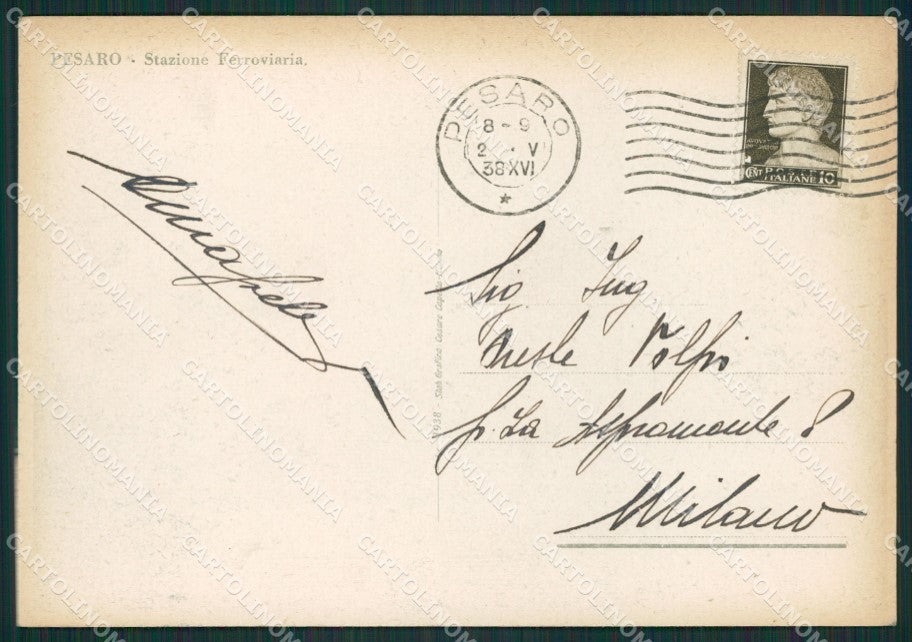 PESARO - Stazione Ferroviaria.
PESARO
8 - 9
2 . V
38 XVI
POSTE
CENT ITALIANE 10
Sig Ing
Oreste Volpi
P.za Aspromonte 8
Milano
1938 Stab Grafico Cesare Capello
CARTOLINOMANIA